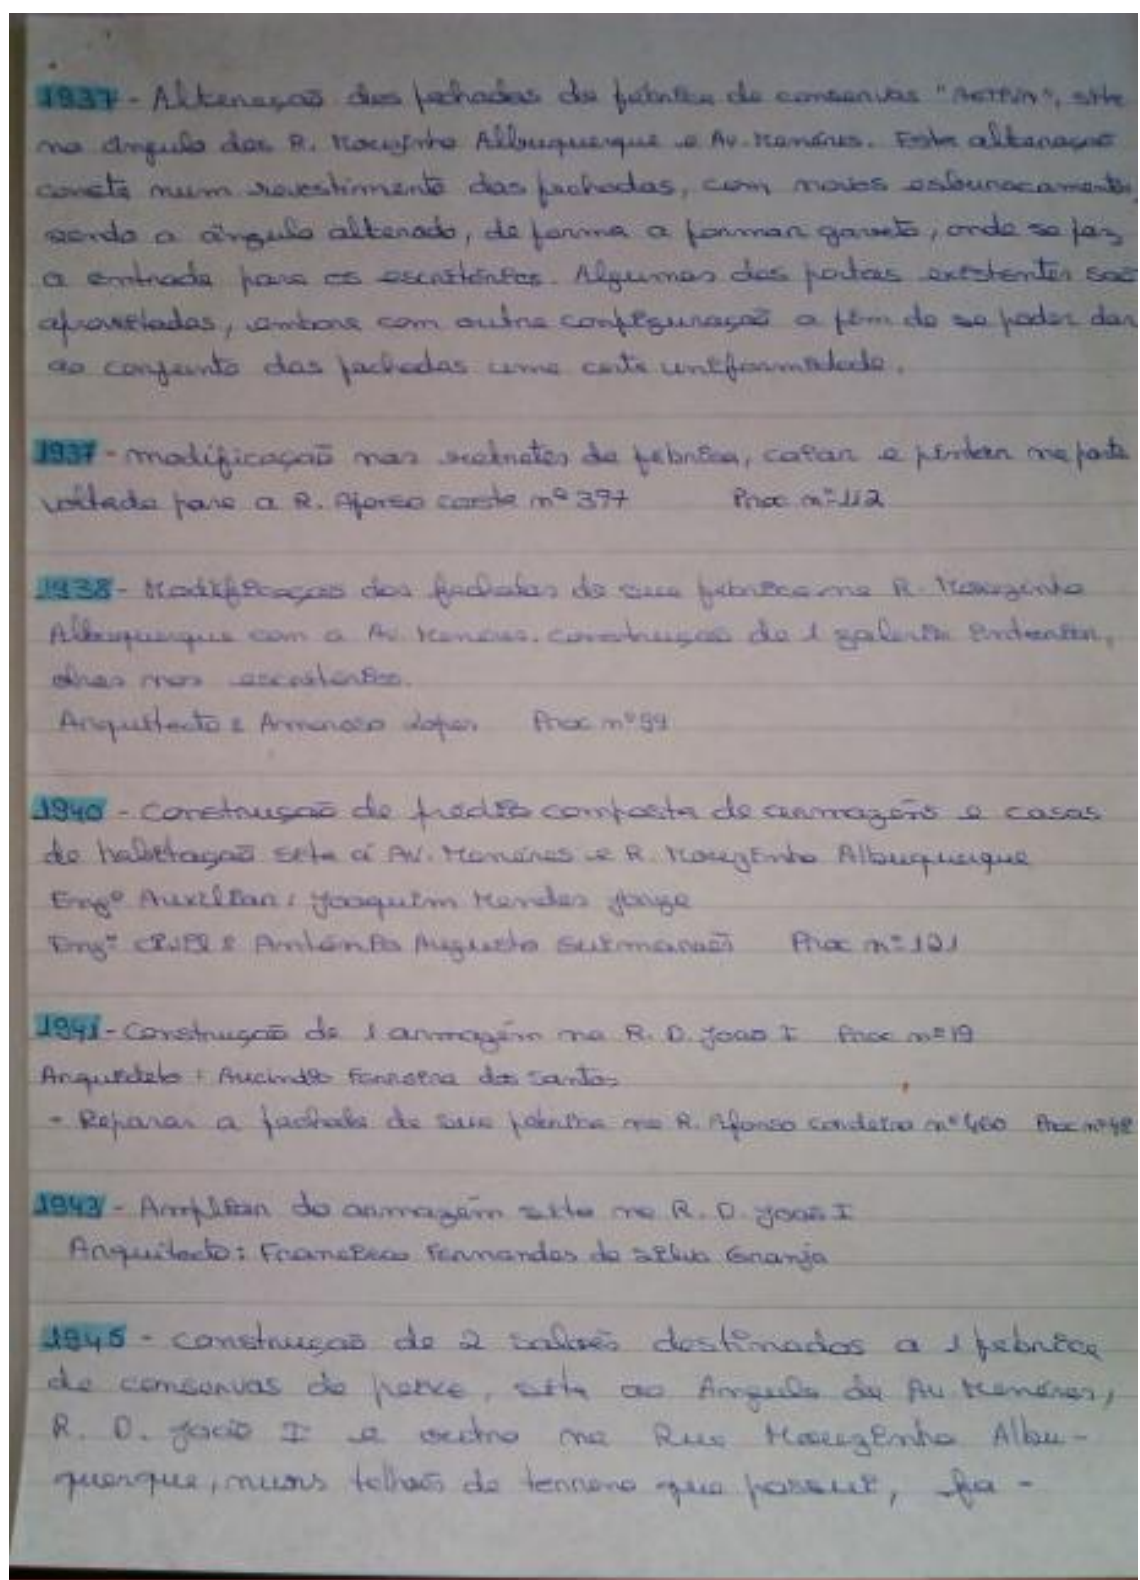 1937 - Alteração das fachadas da fábrica de conservas "ACTIVA", sita
no ângulo das R. Mouzinho Albuquerque e Av. Menéres. Esta alteração
consta num revestimento das fachadas, com novos esburacamentos,
sendo o ângulo alterado, de forma a formar gaveto, onde se faz
a entrada para os escritórios. Algumas das portas existentes são
aproveitadas, embora com outra configuração a fim de se poder dar
ao conjunto das fachadas uma certa uniformidade.
1937 - modificação nas retretes da fábrica, caiar e pintar na parte
voltada para a R. Afonso Costa nº 397 Proc nº 112
1938 - Modificação das fachadas da sua fábrica na R. Mouzinho
Albuquerque com a Av. Menéres. Construção de 1 galeria interior,
obras nos escritórios.
Arquitecto: Lopes Proc nº 99
1940 - Construção de prédio composta de armazéns e casas
de habitação sita á Av. Menéres e R. Mouzinho Albuquerque
Engº Auxiliar: Joaquim Mendes Jorge
Engº Civil: António Augusto Guimarães Proc nº 121
1941 - Construção de 1 armazém na R. D. João I Proc nº 19
Arquitecto: Aucindio Ferreira dos Santos
- Reparar a fachada da sua fábrica na R. Afonso Cordeiro nº 460 Proc nº 48
1943 - Ampliar do armazém sito na R. D. João I
Arquitecto: Francisco Fernandes da Silva Granja
1945 - Construção de 2 salões destinados a 1 fábrica
de conservas de peixe, sita ao Angulo da Av. Menéres,
R. D. João I e outro na Rua Mouzinho Albu-
querque, nuns talhões de terreno que possui, fa-